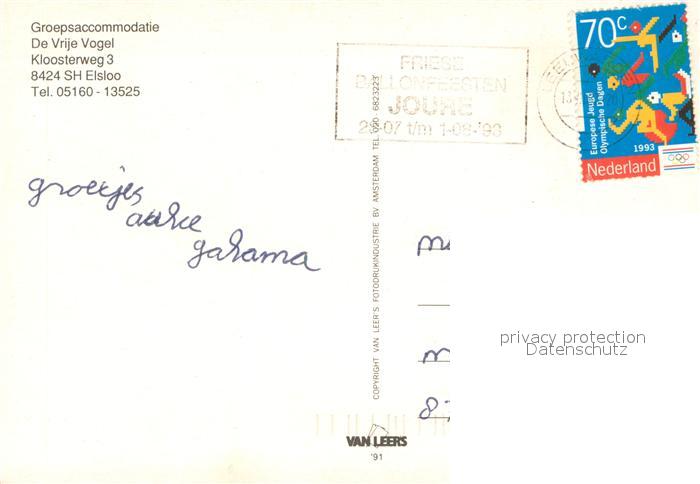 Groepsaccommodatie
De Vrije Vogel
Kloosterweg 3
8424 SH Elsloo
Tel. 05160 - 13525
FRIESE
BALLONFEESTEN
JOURE
t/m 1-08-'93
70c
Europese Jeugd
Olympische Dagen
1993
Nederland
groetjes
gahama
COPYRIGHT VAN LEER'S FOTODRUKINDUSTRIE BV AMSTERDAM TEL. 020 - 6823223
privacy protection
Datenschutz
VAN LEER'S
'91